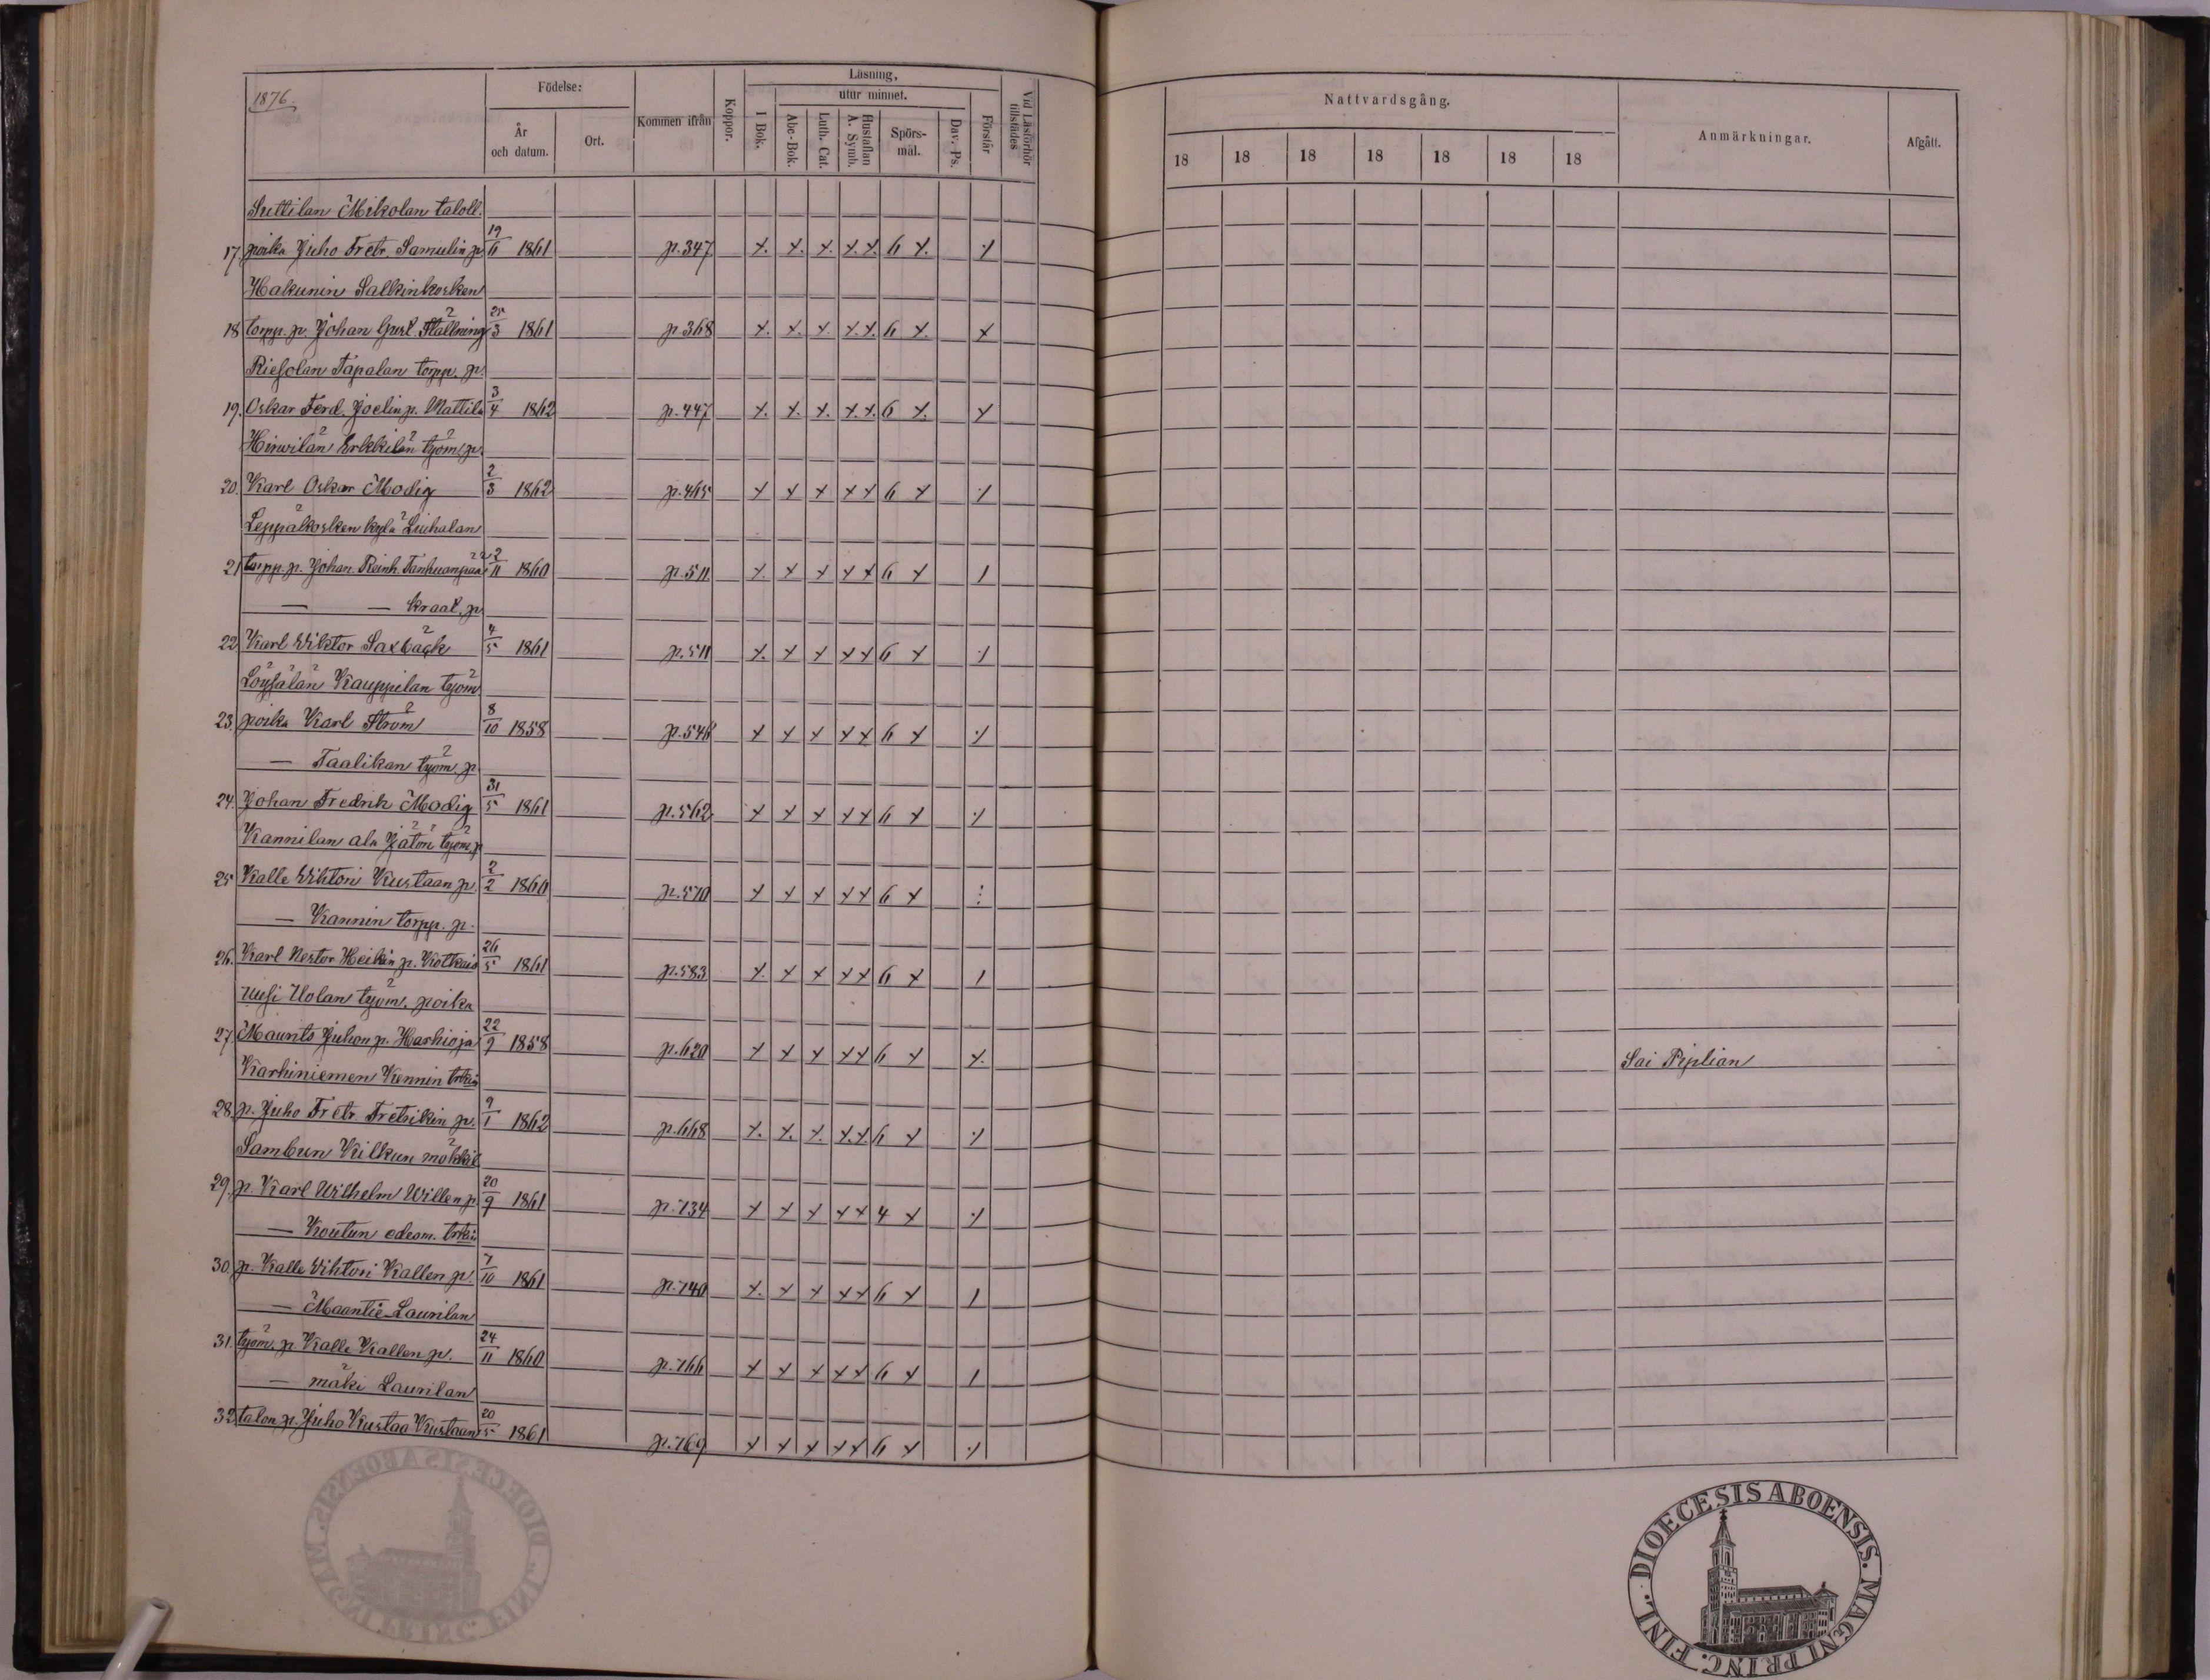 1876.
Födelse:
År och datum.
Ort.
Kommen ifrån
Koppor.
Läsning,
utur minnet.
I Bok.
Abc-Bok.
Luth. Cat.
Hustaflan A. Symb.
Spörsmål.
Dav. Ps.
Förstår
Vid Läsförhör tillstädes
Nattvardsgång.
18 18 18 18 18 18 18
Anmärkningar.
Afgått.
Suttilan Mikolan taloll.
17. poika Juho Fretr. Samulin p. 19/6 1861 p.347 x. x. x. x. x. 6 x.
Hakunin Sallinkosken
18 torpp. p. Johan Gust. Stallning 3 1861 p.368 x. x. x. x. x. 6 x. x
Riesolan Tapalan torpp. p.
19. Oskar Ferd. Joelin p. Mattila 3/4 1862 p.447 x. x. x. x. x. 6 x. x
Hirwilän Erkkilän työm. p.
20. Karl Oskar Modig 2/3 1862 p.465 x x x x x 6 x
Leppälkosken kylä Liuhalan
21 torpp. p. Johan Reinh. Tanhuanpää 2/11 1860 p.511 x. x x x x 6 x /
— — kraat. p.
22 Karl Wiktor Saxbäck 4/5 1861 p.511 x. x x x x 6 x
Löysälän Kauppilan työm
23. poika Karl Ström 8/10 1858 p.546 x x x x x 6 x
— Taalikan työm. p.
24. Johan Fredrik Modig 31/5 1861 p.562 x x x x x 6 x
Kannilan ala Jätön työm. p
25 Kalle Wihtori Kustaan p. 2/2 1860 p.570 x x x x x 6 x :
— Kannin torpp. p.
26. Karl Nestor Heikin p. Kotkaio 26/5 1861 p.583 x. x x x x 6 x /
Uusi Uolan työm. poika
27. Maurits Juhon p. Harhioja 22/9 1858 p.620 x x x x x 6 x x. Sai Piplian
Karhiniemen Kennin
28. p. Juho Fretr. Fretrikin p. 9/1 1862 p.668 x. x. x. x. x. 6 x
Sambun Kilkun
29. p. Karl Wilhelm Willen p. 20/9 1861 p.734 x x x x x 4 x
— Koutun edesm.
30. p. Kalle Wihtori Kallen p. 7/10 1861 p.740 x. x x x x 6 x /
— Maantie-Laurilan
31. työm. p. Kalle Kallen p. 24/11 1860 p.766 x x x x x 6 x /
— mäki Laurilan
32. talon p. Juho Kustaa Kustaan 20/5 1861 p.769 x x x x x 6 x
DIOECESIS ABOENSIS. MAGNI PRINC. FINL.